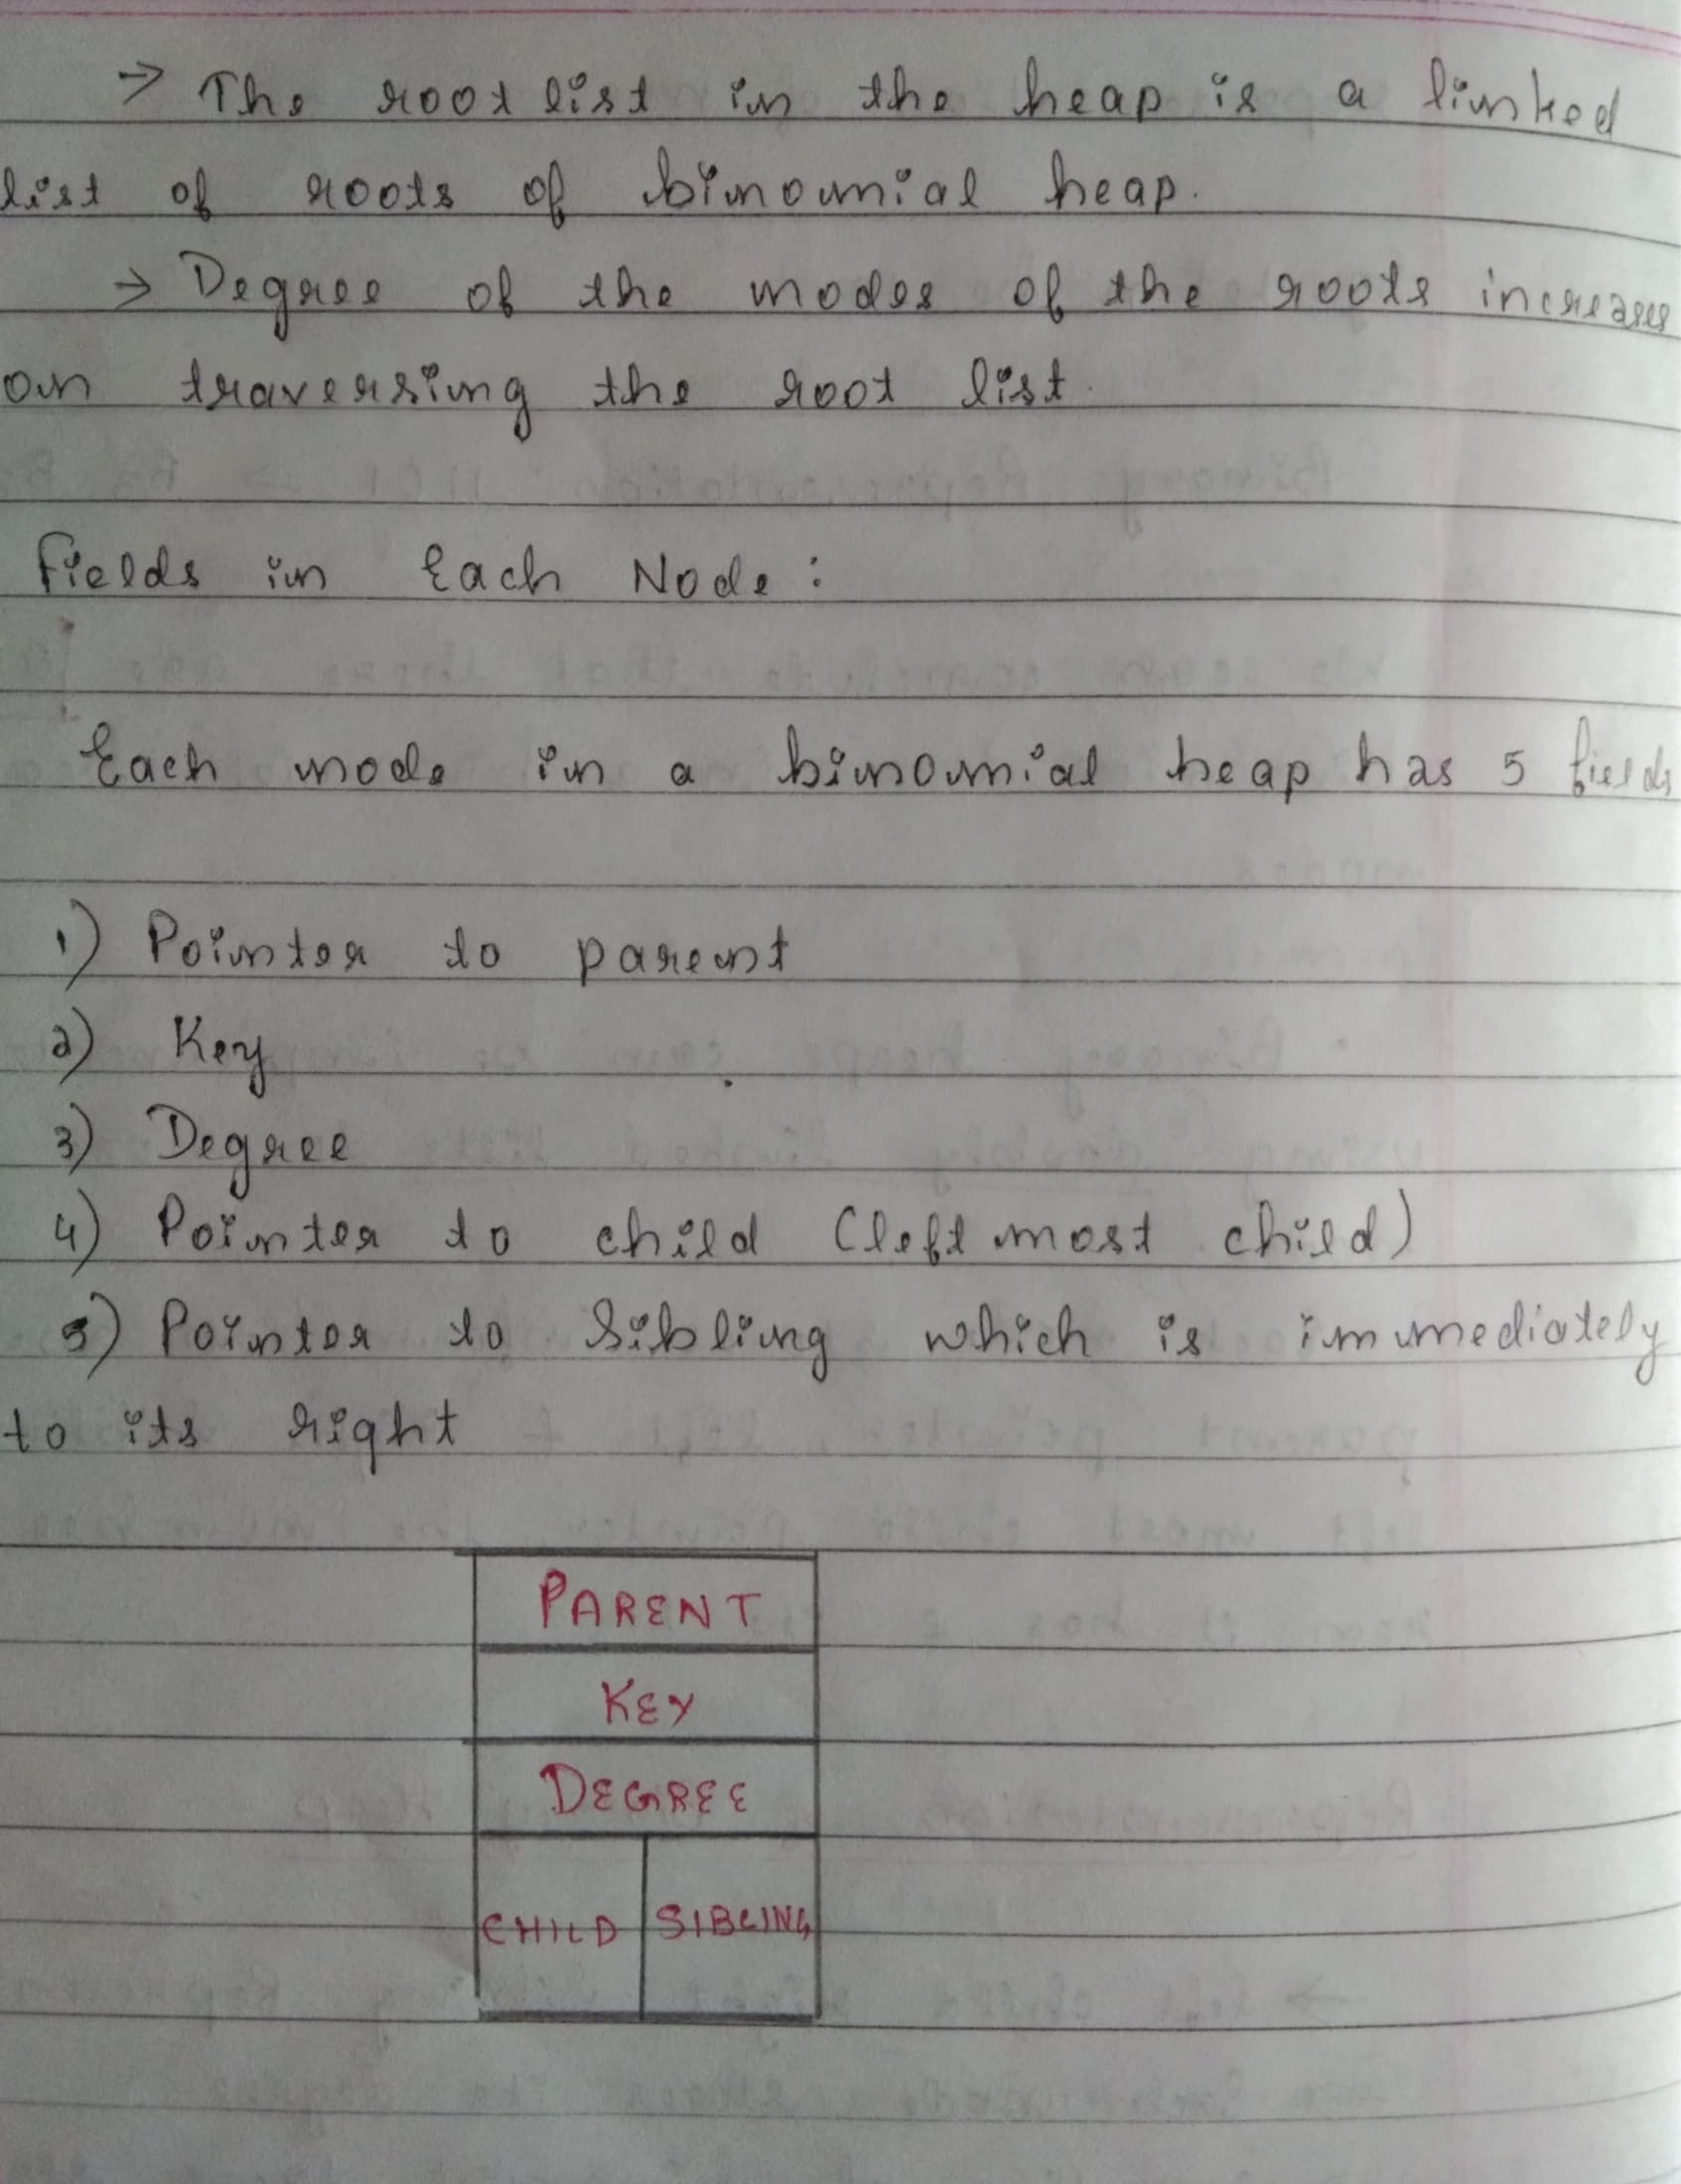 → The root list in the heap is a linked
list of roots of binomial heap.
→ Degree of the nodes of the roots increases
on traversing the root list.
Fields in Each Node :
Each node in a binomial heap has 5 fields
1) Pointer to parent
2) Key
3) Degree
4) Pointer to child (left most child)
5) Pointer to Sibling which is immediately
to its right
PARENT
KEY
DEGREE
CHILD SIBLING